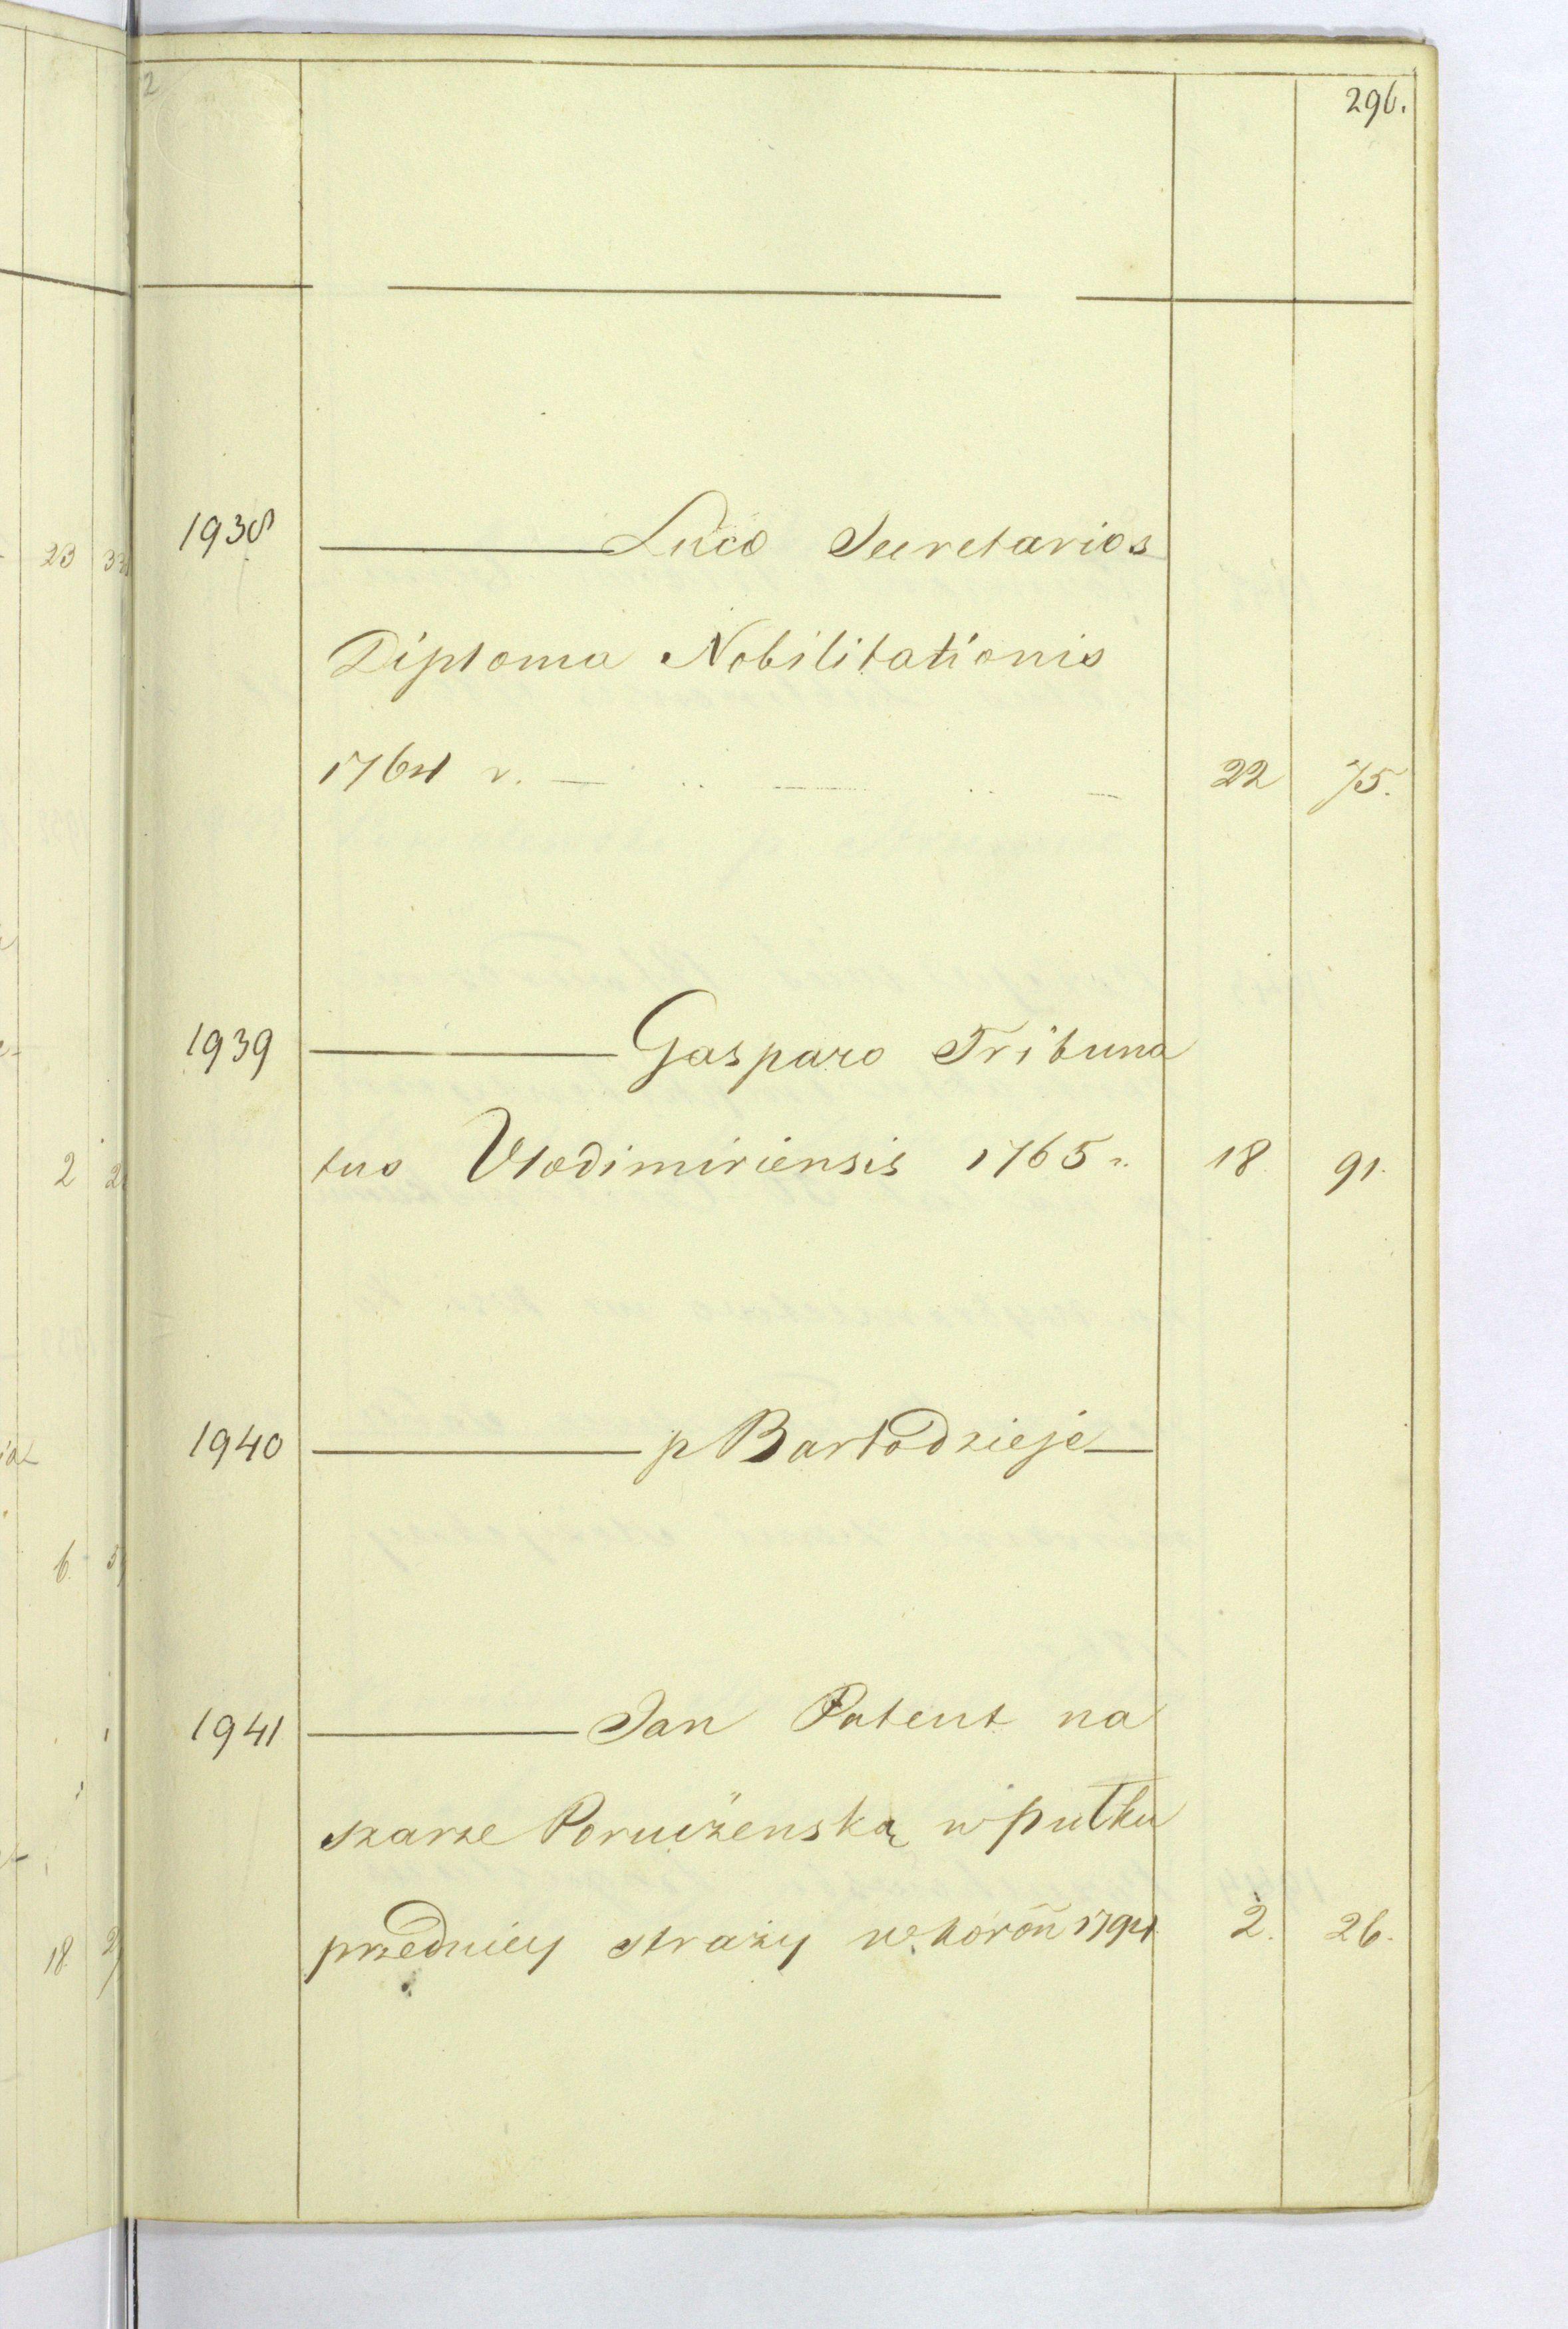 2
296.
1938 Luco Secretarios
Diploma Nobilitationis
1764 r. 22 75.
1939 Gasparo Tribuna
tus Vlodimiriensis 1765 r. 18. 91.
1940 p Bartodzieje
1941 Jan Patent na
szarze Poruczenską w pułku
przedniey strazy w. koron̄ 1794 2. 26.